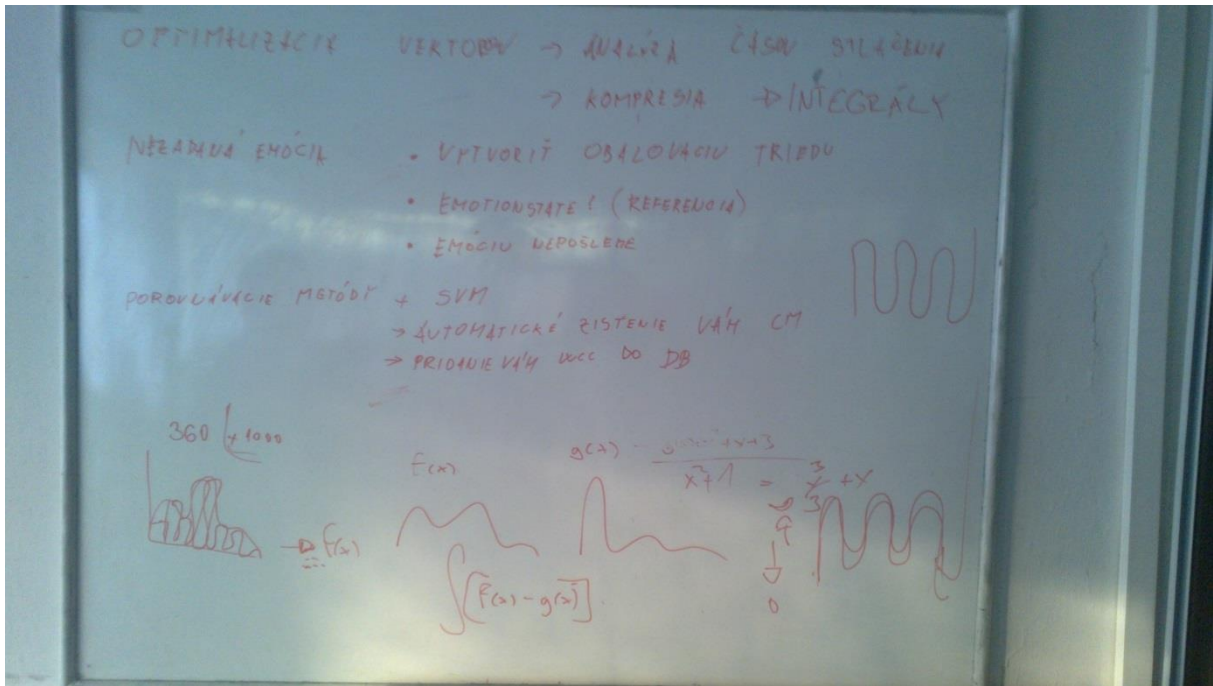 OPTIMALIZÁCIA VEKTOROV → ANALÝZA ČASOV STLAČENIA
→ KOMPRESIA → INTEGRÁLY
NEZADANÁ EMÓCIA • VYTVORIŤ OBALOVACIU TRIEDU
• EMOTIONSTATE! (REFERENCIA)
• EMÓCIU NEPOŠLEME
POROVNÁVACIE METÓDY + SVM
→ AUTOMATICKÉ ZISTENIE VÁH CM
→ PRIDANIE VÁH DO DB
360 x 1000
f(x)
g(x)
x²+1 =
+ x
→ f(x)
∫[f(x) - g(x)]
0